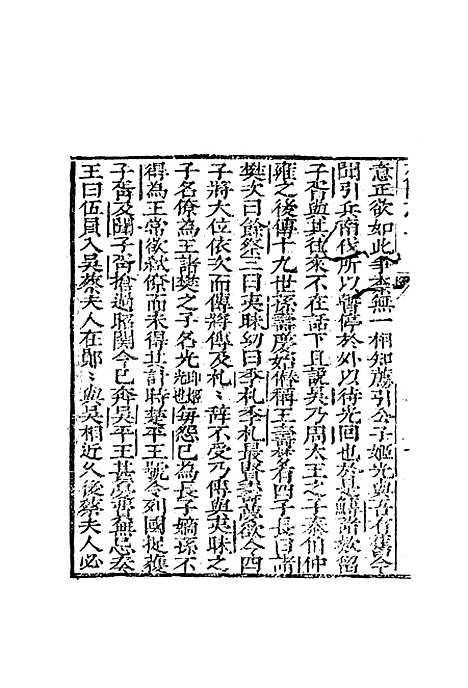 意正欲如此爭奈無一相知薦引公子姬光與吾有舊今
聞引兵南伐所以暫停於外以待光回也於是鱄諸款留
子胥與其往來不在話下且說吳乃周太王之子泰伯仲
雍之後傳十九世孫壽慶始僭稱王壽夢名有四子長曰諸
樊次曰餘祭三曰夷昧幼曰季札季札最賢壽夢欲令四
子將大位依次而傳將傳及札〻辞不受乃傳與夷昧之
子名僚為王諸樊之子名光光即姬也每怨己為長子嫡孫不
得為王常欲弒僚而未得其計時楚平王號令列國捉獲
子胥及聞子胥搶過昭関今已奔吳平王甚憂費無忌奏
王曰伍員入吳蔡夫人在鄖〻與吳相近久後蔡夫人必